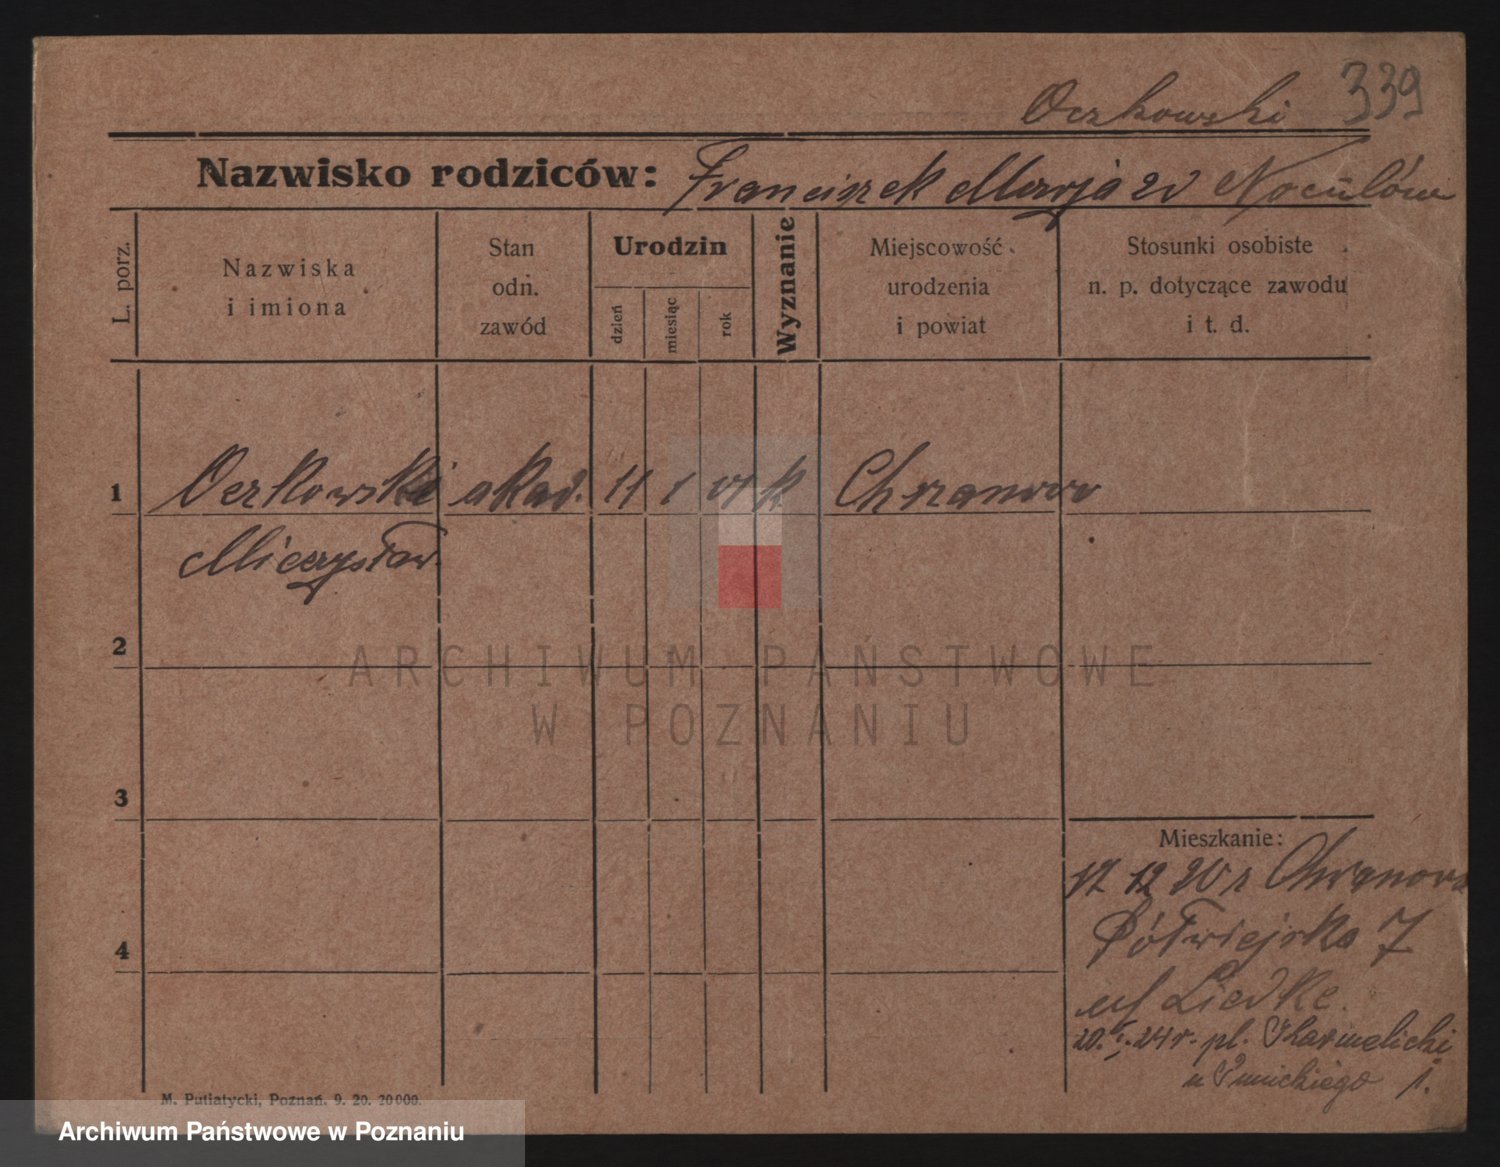 Oczkowski 339
Nazwisko rodziców: Franciszek Marja z d
L. porz.
Nazwiska
i imiona
Stan
odn.
zawód
Urodzin
dzień
miesiąc
rok
Wyznanie
Miejscowość
urodzenia
i powiat
Stosunki osobiste
n. p. dotyczące zawodu
i t. d.
1 Oczkowski akad. 11 1 01 k Chrzanowo
Mieczysław.
2
3
4
Mieszkanie:
17 12 20 r
Półwiejska 7
Liedke.
20. 24 r. pl. Karmelicki
u 1.
M. Putiatycki, Poznań. 9. 20. 20000.
ARCHIWUM PAŃSTWOWE
W POZNANIU
Archiwum Państwowe w Poznaniu